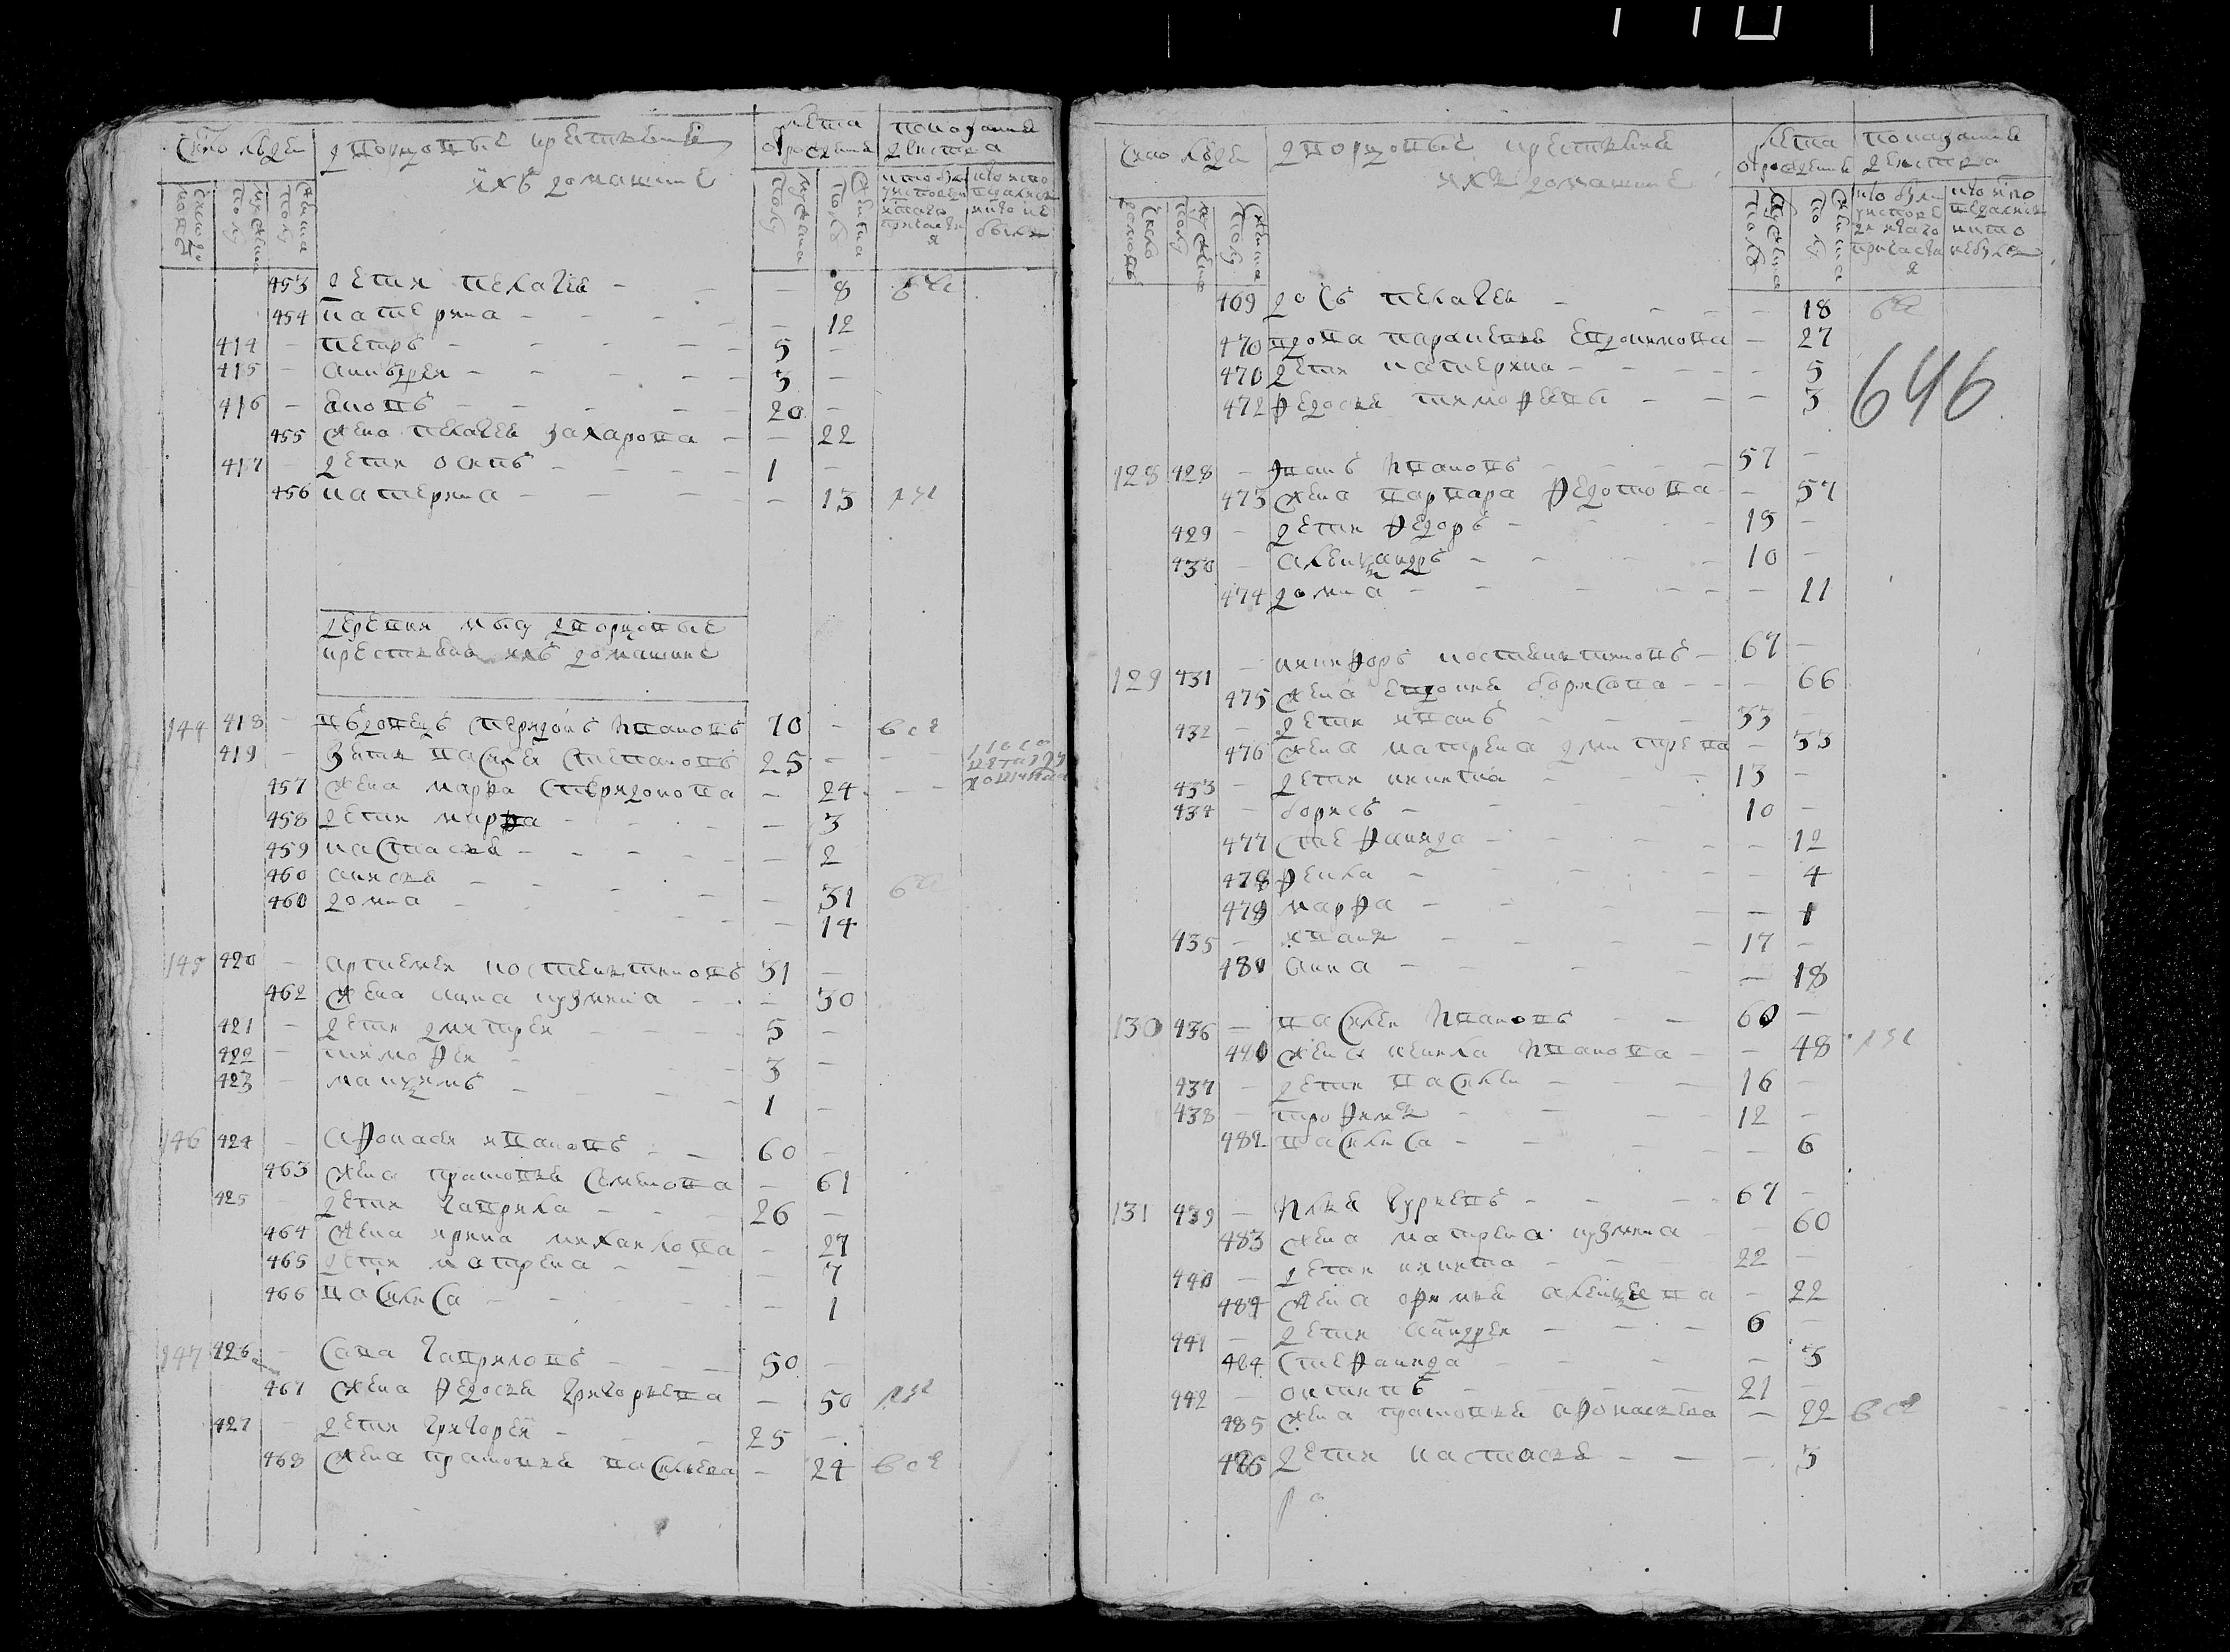 Сколь людей
дворцовые крестьяне
ихъ домашние
лета от рождения
показание действа
453 дети пелагея - 8 все
454 катерина - 12
414 - петръ - 5 -
415 - анъдреи - 3 -
416 - аковъ - 20 -
455 жена пелагея захарова - 22
417 - дети осипъ - 1 -
456 катерина - 13
деревни мыз дворцовые
крестьяня ихъ домашние
144 418 - въдовецъ спиридонъ ивановъ 70 - все
419 - зять василей степановъ 25 -
457 жена марфа спиридонова - 24
458 дети марфа - 3
459 настасья - 2
460 анисья - 31 все
460 домна - 14
145 420 - артемеи костентиновъ 31 -
462 жена анна кузмина - 30
421 - дети дмитреи - 5 -
422 - тимофеи - 3 -
423 - макъсимъ - 1 -
146 424 - афонасеи ивановъ - 60 -
463 жена прасковья семенова - 61
425 - дети гаврила - 26 -
464 жена ирина михаилова - 27
465 дети матрена - 7
466 василиса - 1
147 426 - сава гавриловъ - 50 -
467 жена федосья григорьева - 50
427 - дети григореи - 25 -
468 жена прасковья васильева - 24 все
Сколь людей
дворцовые крестьяне
ихъ домашние
лета от рождения
показание действа
469 дочь пелагея - 18 все
470 вдова парасковья евдокимова - 27
470 дети катерина - 5
472 федосья тимофеевы - 3
646
128 428 - иванъ ивановъ - 57 -
473 жена варвара федотова - 57
429 - дети федоръ - 15 -
430 - алексанъдръ - 10 -
474 домна - 11
129 431 - никифоръ костентиновъ - 67 -
475 жена евдокия борисова - 66
432 - дети иванъ - 33 -
476 жена матрена дмитрева - 33
433 - дети никита - 13 -
434 - борисъ - 10 -
477 степанида - 12
478 фекла - 4
479 марфа - 1
435 - иванъ - 17 -
480 анна - 18
130 436 - василеи ивановъ - 60 -
480 жена некила иванова - 48
437 - дети василеи - 16 -
438 - трофимъ - 12 -
482 василиса - 6
131 439 - илья гурьевъ - 67 -
483 жена матрена кузмина - 60
440 - дети никита - 22 -
484 жена офимья алексеева - 22
441 - дети андреи - 6 -
484 степанида - 3
442 - антипъ - 21 -
485 жена прасковья афонасьева - 22 все
486 дети настасья - 3